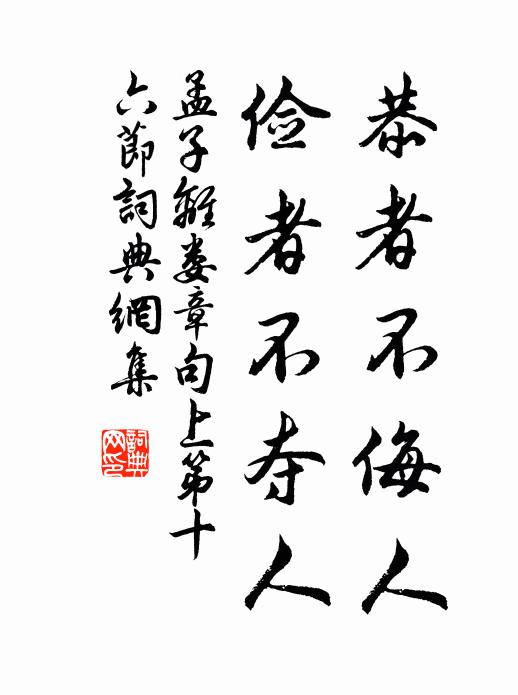 恭者不侮人
俭者不夺人
孟子離娄章句上第十
六節詞典網集
詞典
网印